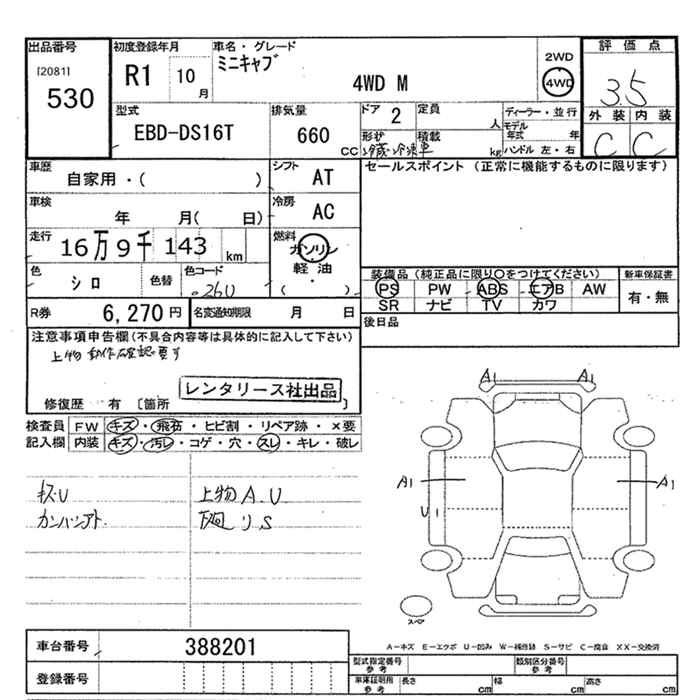 出品番号
[2081]
530
初度登録年月
R1 10月
車名・グレード
ミニキャブ
4WD M
2WD
4WD
評価点
3.5
外装 内装
C C
型式
EBD-DS16T
排気量
660 CC
ドア 2
定員 人
形状
冷蔵冷凍車
積載 kg
ディーラー・並行
モデル年式 年
ハンドル 左・右
車歴
自家用・( )
シフト AT
セールスポイント (正常に機能するものに限ります)
車検
年 月( 日)
冷房 AC
走行
16万9千143 km
燃料
ガソリン
軽油
・
( )
色
シロ
色替
色コード
26U
装備品(純正品に限り○をつけてください)
新車保証書
PS PW ABS エアB AW
有・無
SR ナビ TV カワ
R券 6,270円
名変通知期限 月 日
後日品
注意事項申告欄(不具合内容等は具体的に記入して下さい)
上物動作確認要す
レンタリース社出品
修復歴 有 〔箇所 〕
検査員記入欄
FW キズ・飛石・ヒビ割・リペア跡・×要
内装 キズ・汚レ・コゲ・穴・スレ・キレ・破レ
キズU
上物A.U
カンバンアト
下廻リS
A1 A1
A1 A1
U1
スペア
A-キズ E-エクボ U-凹み W-補修跡 S-サビ C-腐食 XX-交換済
車台番号 388201
登録番号
型式指定番号
参考
類別区分番号
参考
車庫証明用
参考
長さ cm 幅 cm 高さ cm